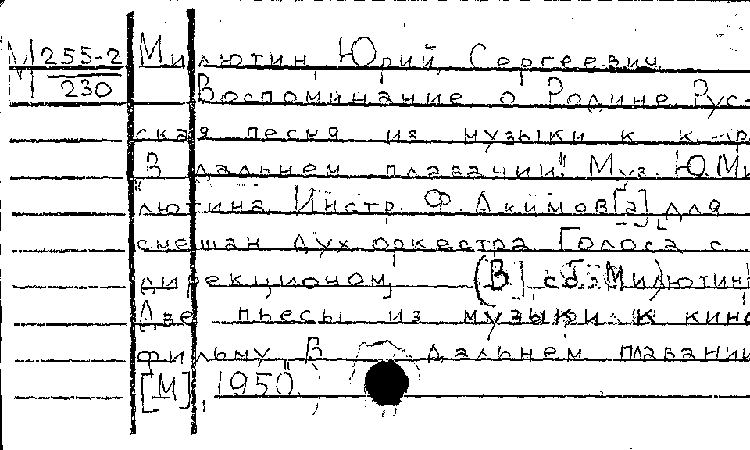 М 255-2 Милютин, Юрий Сергеевич
230 Воспоминание о Родине Рус-
ская песня из музыки к к-ф
"В дальнем плавании". Муз. Ю.Ми
лютина Инстр. Ф. Акимов[а] для
смешан дух оркестра Голоса с
дирекционом (В сб: Милютин
Две пьесы из музыки к кино
фильму В дальнем плавании
[М], 1950